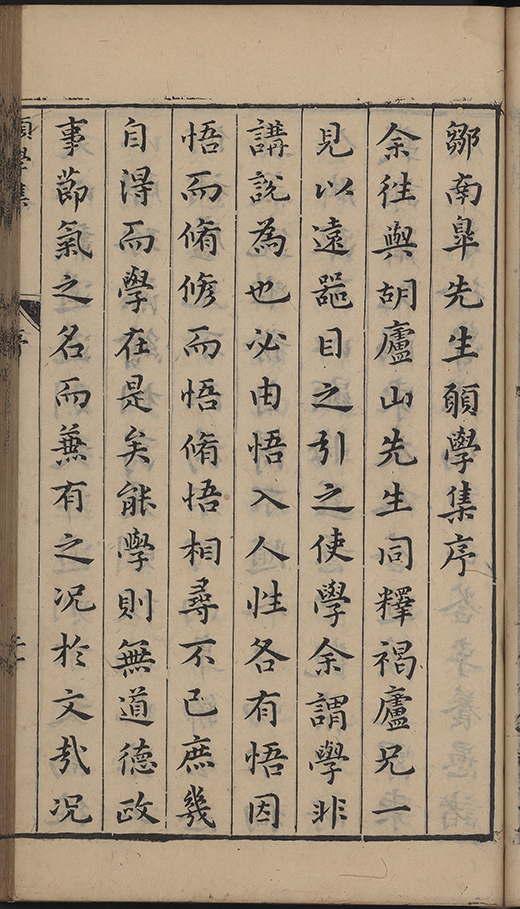 鄒南臯先生願學集序
余往與胡廬山先生同釋褐廬兄一
見以遠器目之引之使學余謂學非
講說為也必由悟入人性各有悟因
悟而脩脩而悟脩悟相尋不已庶幾
自得而學在是矣能學則無道德政
事節氣之名而兼有之况於文哉况
願學集
序